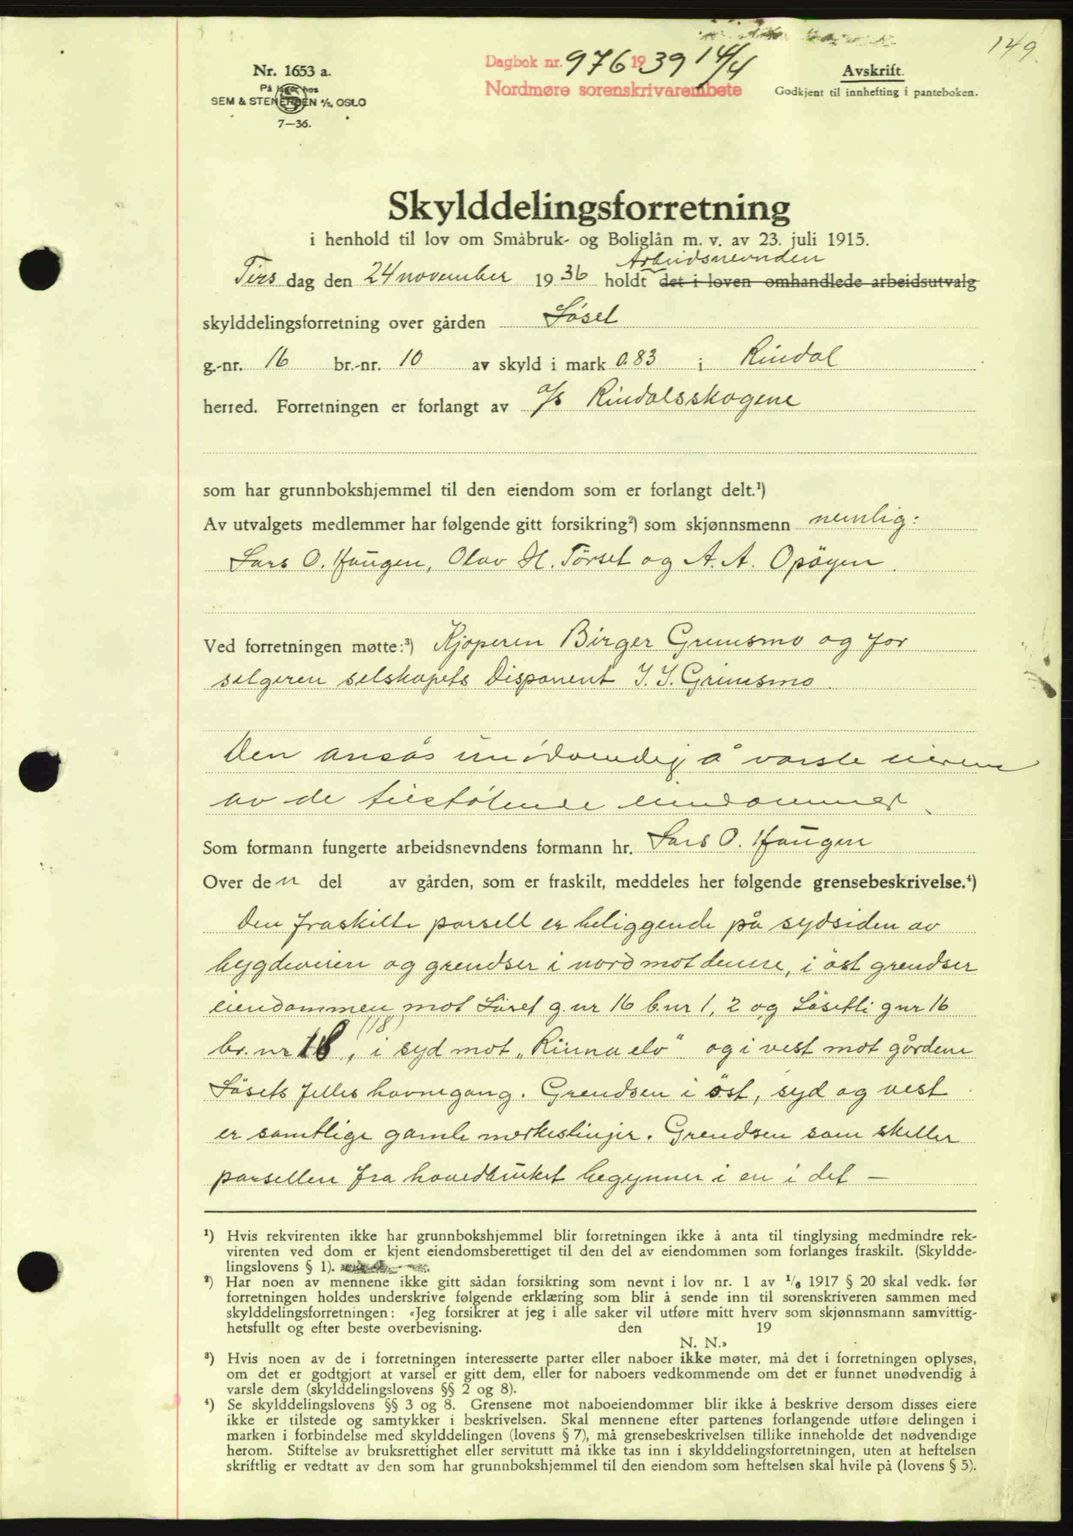 149.
Dagbok nr. 976 1939 14/4
Nordmøre sorenskrivarembete
Nr. 1653 a.
På lager hos
SEM & STENERSEN A/S, OSLO
7—36.
Avskrift.
Godkjent til innhefting i panteboken.
Skylddelingsforretning
i henhold til lov om Småbruk- og Boliglån m. v. av 23. juli 1915.
Arbeidsnevnden
Tirs dag den 24 november 1936 holdt det i loven omhandlede arbeidsutvalg
skylddelingsforretning over gården Løset
g.-nr. 16 br.-nr. 10 av skyld i mark 0.83 i Rindal
herred. Forretningen er forlangt av a/s Rindalsskogene
som har grunnbokshjemmel til den eiendom som er forlangt delt.¹)
Av utvalgets medlemmer har følgende gitt forsikring²) som skjønnsmenn nemlig:
Lars O. Haugen, Olav H. Tørset og A. A. Opøyen.
Ved forretningen møtte:³) Kjøperen Birger Grimsmo og for
selgeren selskapets Disponent I. I. Grimsmo.
Den ansås unødvendig å varsle eierne
av de tilstøtende eiendommer.
Som formann fungerte arbeidsnevndens formann hr. Lars O. Haugen
Over den del av gården, som er fraskilt, meddeles her følgende grensebeskrivelse.⁴)
Den fraskilte parsell er beliggende på sydsiden av
bygdeveien og grendser i nord mot denne, i øst grendser
eiendommen mot Løset g. nr 16 b. nr 1, 2 og Løsetli g nr 16
br. nr 18, (18) i syd mot „Rinna elv" og i vest mot gårdene
Løsets felles havnegang. Grendsen i øst, syd og vest
er samtlige gamle merkeslinjer. Grendsen som skiller
parsellen fra hovedbruket begynner i en i det —
¹) Hvis rekvirenten ikke har grunnbokshjemmel blir forretningen ikke å anta til tinglysing medmindre rek-
virenten ved dom er kjent eiendomsberettiget til den del av eiendommen som forlanges fraskilt. (Skyldde-
lingslovens § 1).
²) Har noen av mennene ikke gitt sådan forsikring som nevnt i lov nr. 1 av 1/6 1917 § 20 skal vedk. før
forretningen holdes underskrive følgende erklæring som blir å sende inn til sorenskriveren sammen med
skylddelingsforretningen: «Jeg forsikrer at jeg i alle saker vil utføre mitt hverv som skjønnsmann samvittig-
hetsfullt og efter beste overbevisning. den 19
N. N.»
³) Hvis noen av de i forretningen interesserte parter eller naboer ikke møter, må det i forretningen oplyses,
om det er godtgjort at varsel er gitt dem, eller for naboers vedkommende om det er funnet unødvendig å
varsle dem (skylddelingslovens §§ 2 og 8).
⁴) Se skylddelingslovens §§ 3 og 8. Grensene mot naboeiendommer blir ikke å beskrive dersom disses eiere
ikke er tilstede og samtykker i beskrivelsen. Skal mennene efter partenes forlangende utføre delingen i
marken i forbindelse med skylddelingen (lovens § 7), må grensebeskrivelsen tillike inneholde det nødvendige
herom. Stiftelse av bruksrettighet eller servitutt må ikke tas inn i skylddelingsforretningen, uten at heftelsen
skriftlig er vedtatt av den som har grunnbokshjemmel til den eiendom som heftelsen skal hvile på (lovens § 5).